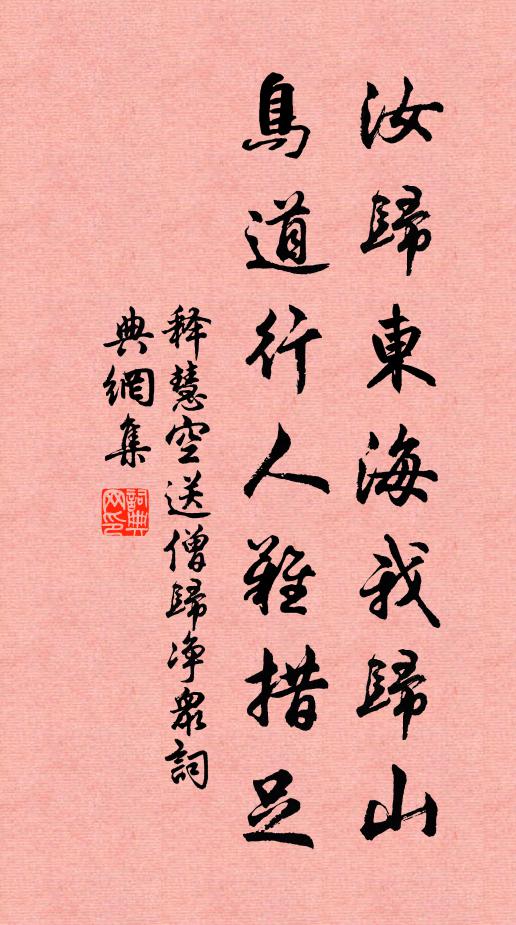 汝歸東海我歸山
鳥道行人難措足
释慧空送僧歸净衆詞
典網集
詞典网印